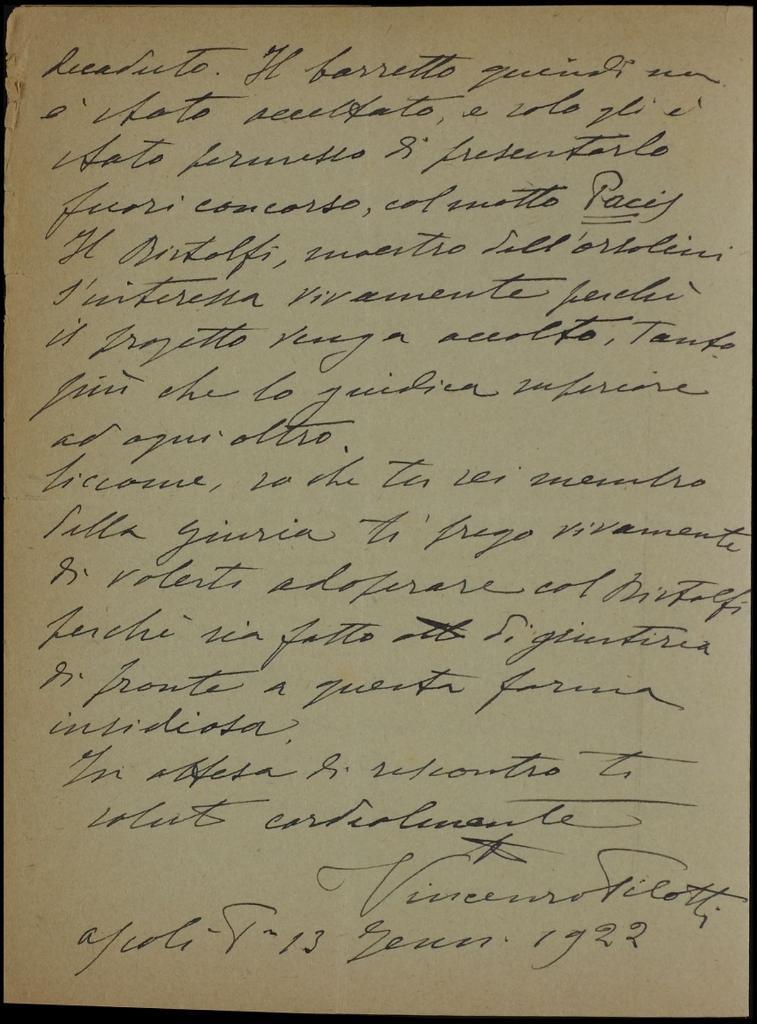 decaduto. Il bozzetto quindi non
è stato accettato, e solo gli è
stato permesso di presentarlo
fuori concorso, col motto Pacis
Il Bistolfi, maestro dell'Orsolini
s'interessa vivamente perchè
il progetto venga accolto, tanto
più che lo giudica superiore
ad ogni altro.
Siccome, so che tu sei membro
della giuria ti prego vivamente
di volerti adoperare col Bistolfi
perchè sia fatto di giustizia
di fronte a questa forma
insidiosa.
In attesa di riscontro ti
saluto cordialmente
Vincenzo Pilotti
Ascoli P.no 13 Genn. 1922